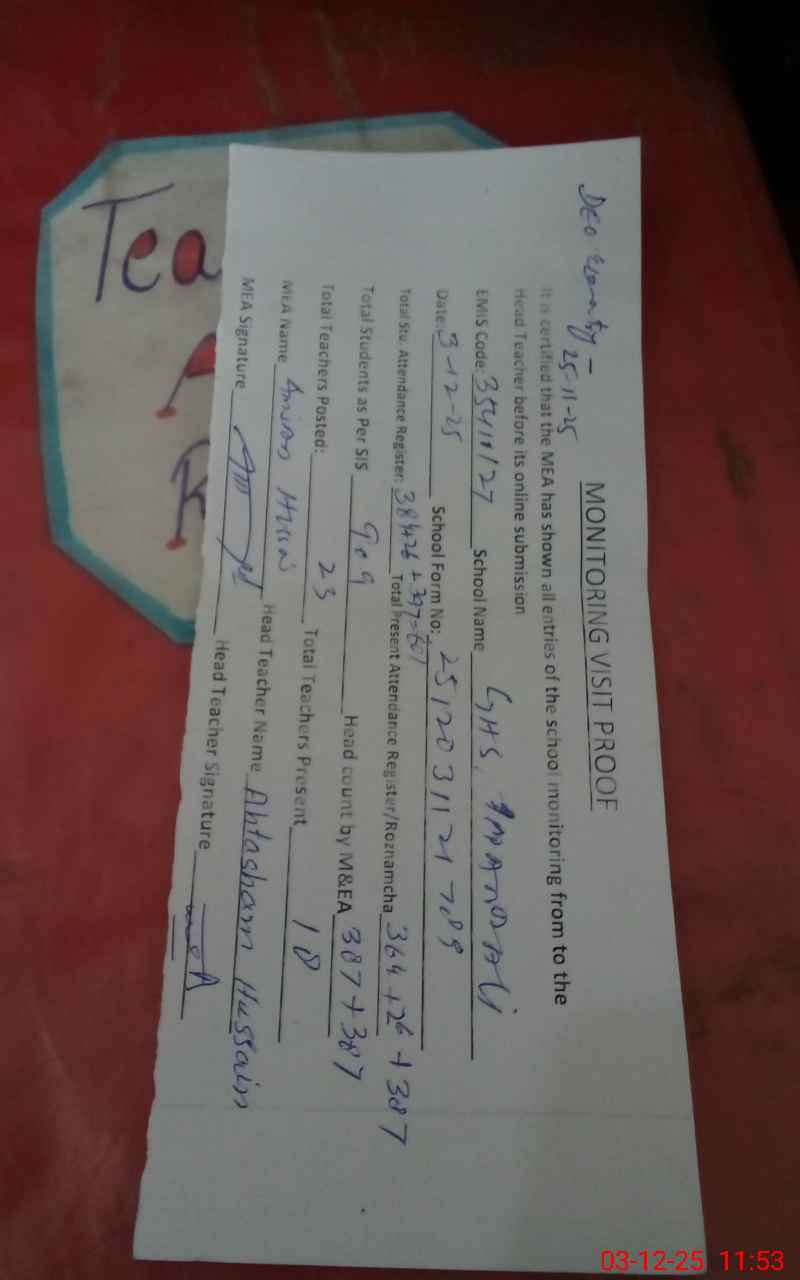 MONITORING VISIT PROOF
25-11-25
It is certified that the MEA has shown all entries of the school monitoring from to the
Head Teacher before its online submission
EMIS Code: School Name GHS,
Date: 3-12-25 School Form No: 
Total Stu. Attendance Register: Total Present Attendance Register/Roznamcha 364+26+387
Total Students as Per SIS 909 Head count by M&EA 387+387
Total Teachers Posted: 23 Total Teachers Present 18
MEA Name Head Teacher Name Ahtasham Hussain
MEA Signature Head Teacher Signature
Tea
03-12-25 11:53